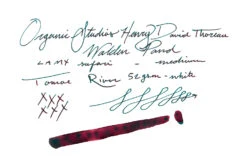 Organic Studios Henry David Thoreau
Walden Pond
LAMY safari - medium
Tomoe River 52 gsm - white
XXX
XXX